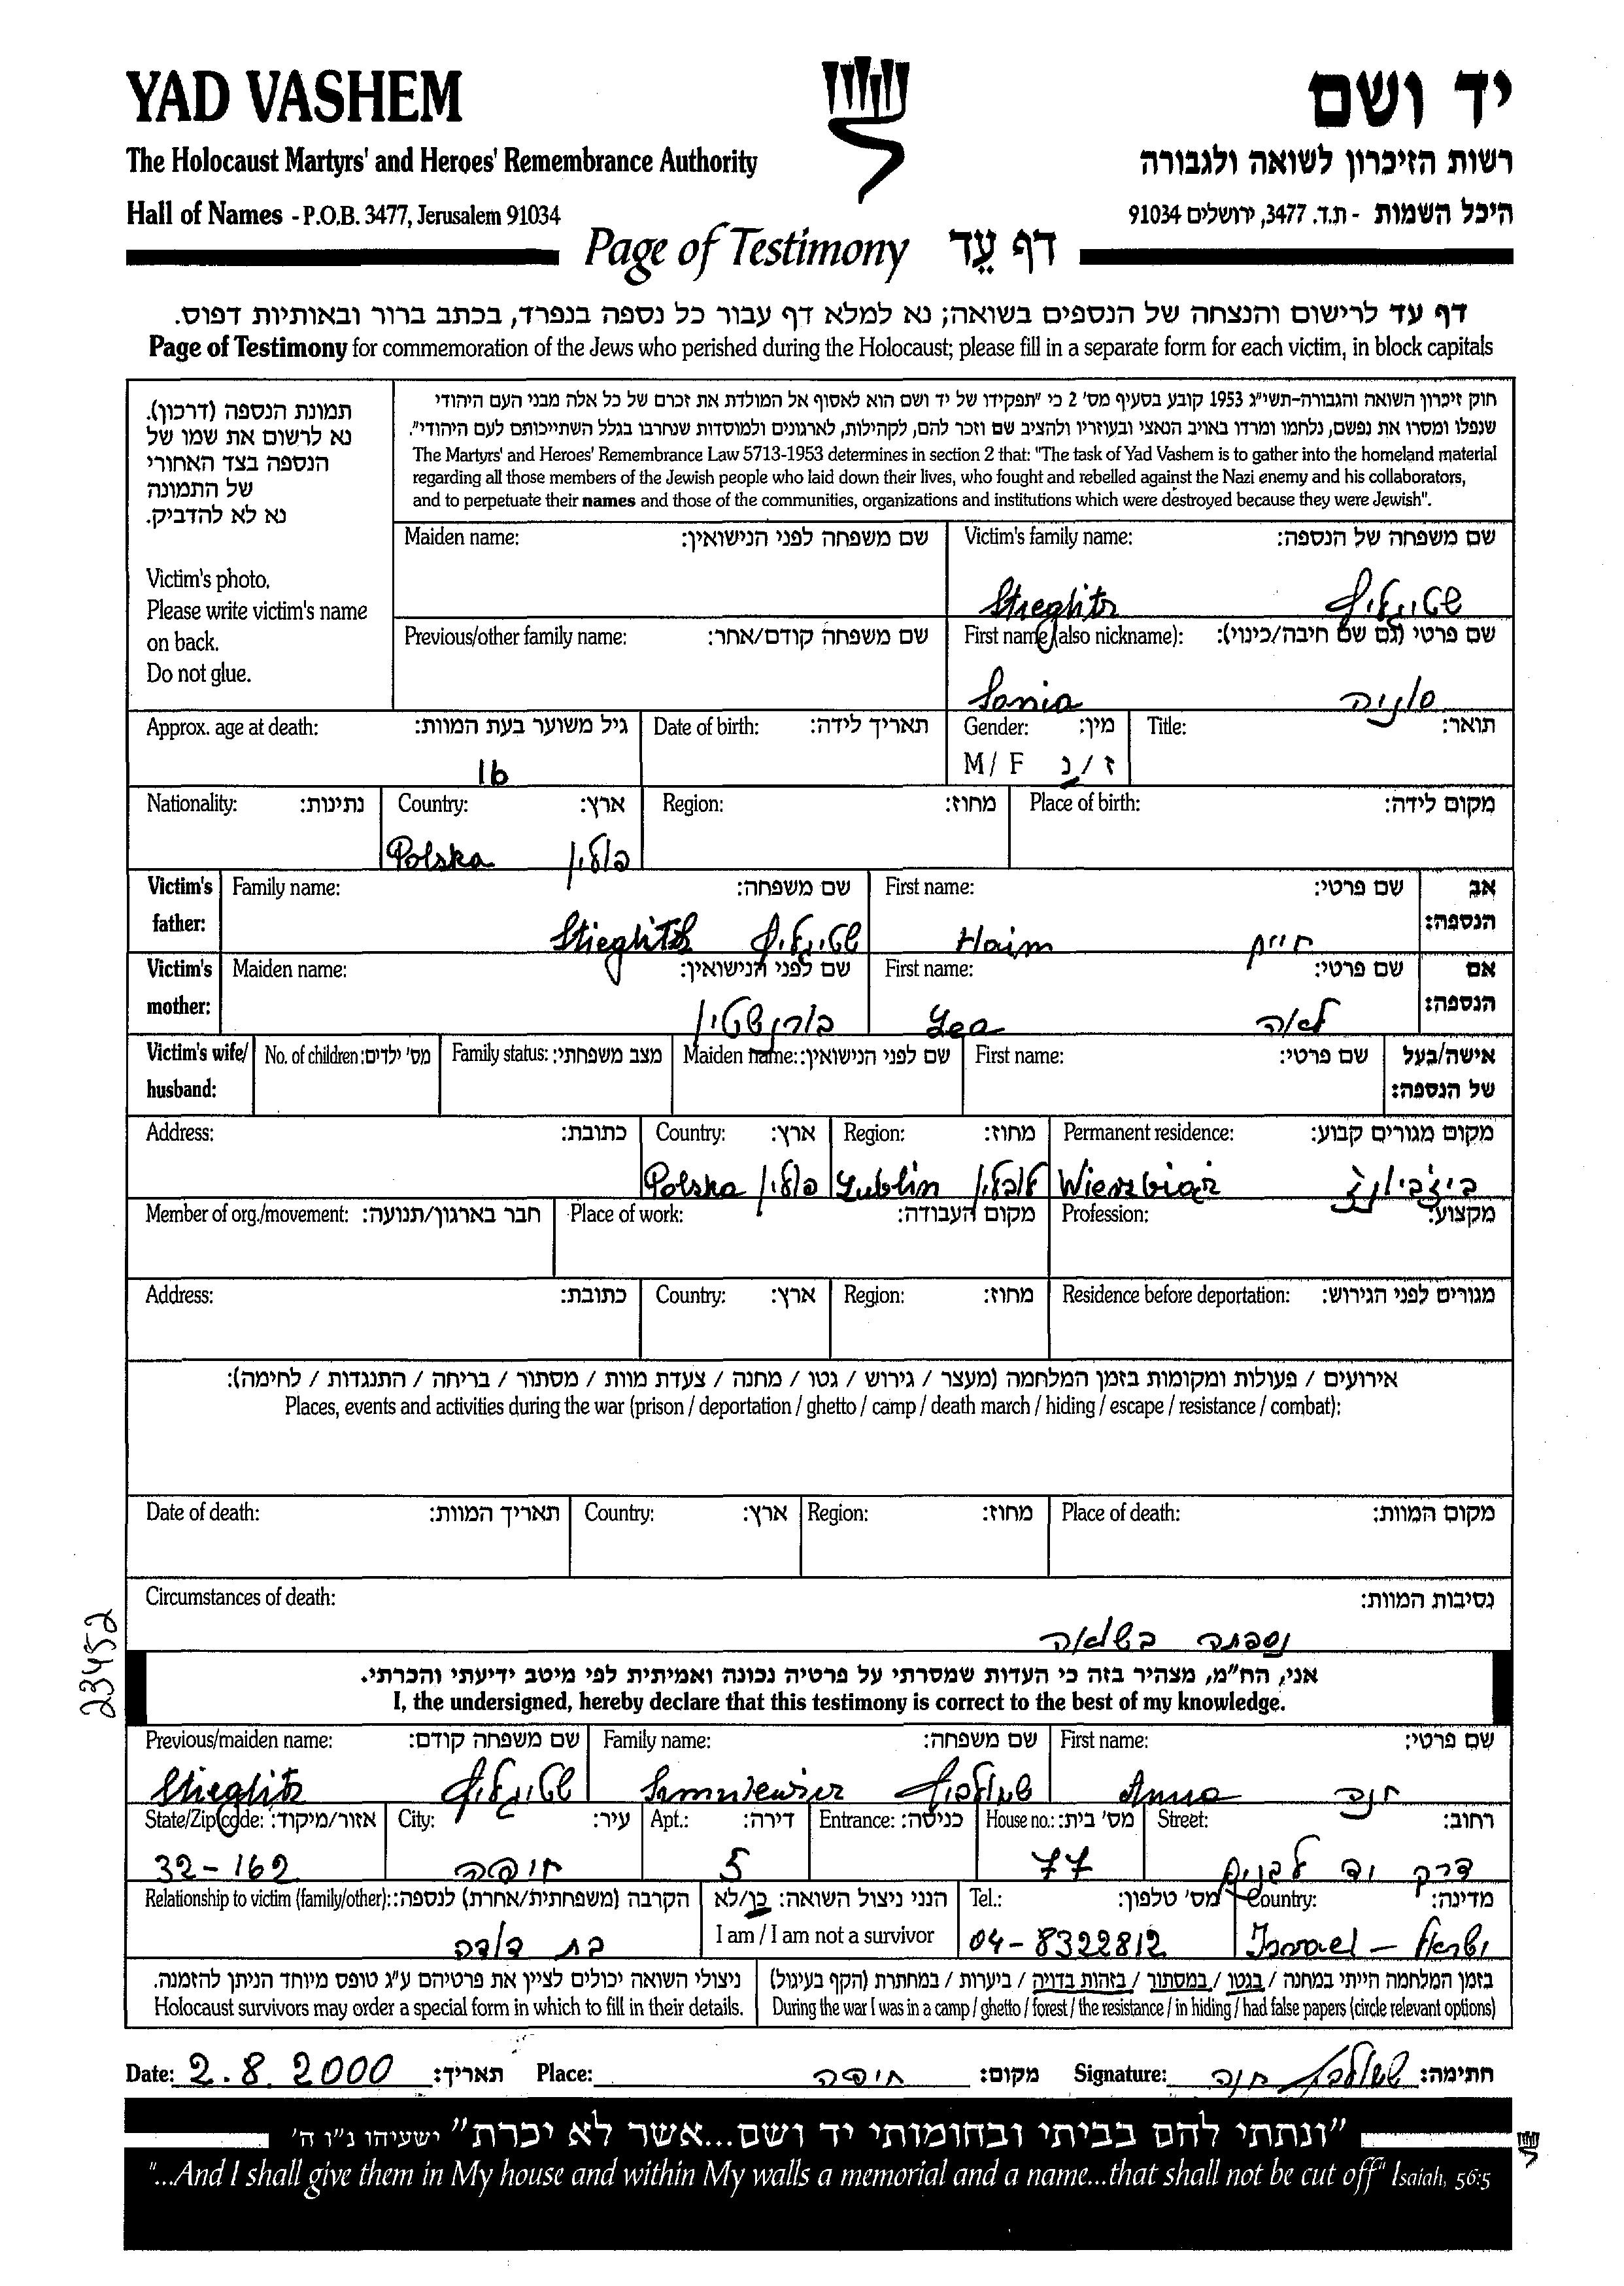 YAD VASHEM
יד ושם
The Holocaust Martyrs' and Heroes' Remembrance Authority
רשות הזיכרון לשואה ולגבורה
Hall of Names - P.O.B. 3477, Jerusalem 91034
היכל השמות - ת.ד. 3477, ירושלים 91034
Page of Testimony דף עֵד
דף עד לרישום והנצחה של הנספים בשואה; נא למלא דף עבור כל נספה בנפרד, בכתב ברור ובאותיות דפוס.
Page of Testimony for commemoration of the Jews who perished during the Holocaust; please fill in a separate form for each victim, in block capitals
תמונת הנספה (דרכון).
נא לרשום את שמו של
הנספה בצד האחורי
של התמונה
נא לא להדביק.
Victim's photo.
Please write victim's name
on back.
Do not glue.
חוק זיכרון השואה והגבורה-תשי"ג 1953 קובע בסעיף מס' 2 כי "תפקידו של יד ושם הוא לאסוף אל המולדת את זכרם של כל אלה מבני העם היהודי
שנפלו ומסרו את נפשם, נלחמו ומרדו באויב הנאצי ובעוזריו ולהציב שם וזכר להם, לקהילות, לארגונים ולמוסדות שנחרבו בגלל השתייכותם לעם היהודי".
The Martyrs' and Heroes' Remembrance Law 5713-1953 determines in section 2 that: "The task of Yad Vashem is to gather into the homeland material
regarding all those members of the Jewish people who laid down their lives, who fought and rebelled against the Nazi enemy and his collaborators,
and to perpetuate their names and those of the communities, organizations and institutions which were destroyed because they were Jewish".
Maiden name: שם משפחה לפני הנישואין:
Victim's family name: שם משפחה של הנספה:
Stieglitz שטיגליץ
Previous/other family name: שם משפחה קודם/אחר:
First name (also nickname): שם פרטי (גם שם חיבה/כינוי):
Sonia סוניה
Approx. age at death: גיל משוער בעת המוות:
16
Date of birth: תאריך לידה:
Gender: מין:
M / F ז / נ
Title: תואר:
Nationality: נתינות:
Country: ארץ:
Polska פולין
Region: מחוז:
Place of birth: מקום לידה:
Victim's father:
Family name: שם משפחה:
Stieglitz שטיגליץ
First name: שם פרטי:
Haim חיים
אב הנספה:
Victim's mother:
Maiden name: שם לפני הנישואין:
בורנשטיין
First name: שם פרטי:
Lea לאה
אם הנספה:
Victim's wife/ husband:
No. of children: מס' ילדים:
Family status: מצב משפחתי:
Maiden name: שם לפני הנישואין:
First name: שם פרטי:
אישה/בעל של הנספה:
Address: כתובת:
Country: ארץ:
Polska פולין
Region: מחוז:
Lublin לובלין
Permanent residence: מקום מגורים קבוע:
Member of org./movement: חבר בארגון/תנועה:
Place of work: מקום העבודה:
Profession: מקצוע:
Address: כתובת:
Country: ארץ:
Region: מחוז:
Residence before deportation: מגורים לפני הגירוש:
אירועים / פעולות ומקומות בזמן המלחמה (מעצר / גירוש / גטו / מחנה / צעדת מוות / מסתור / בריחה / התנגדות / לחימה):
Places, events and activities during the war (prison / deportation / ghetto / camp / death march / hiding / escape / resistance / combat):
Date of death: תאריך המוות:
Country: ארץ:
Region: מחוז:
Place of death: מקום המוות:
Circumstances of death: נסיבות המוות:
נספתה בשואה
23452
אני, הח"מ, מצהיר בזה כי העדות שמסרתי על פרטיה נכונה ואמיתית לפי מיטב ידיעתי והכרתי.
I, the undersigned, hereby declare that this testimony is correct to the best of my knowledge.
Previous/maiden name: שם משפחה קודם:
Stieglitz שטיגליץ
Family name: שם משפחה:
First name: שם פרטי:
Anna חנה
State/Zip code: אזור/מיקוד:
32-162
City: עיר:
חיפה
Apt.: דירה:
5
Entrance: כניסה:
House no.: מס' בית:
77
Street: רחוב:
דרך יד לבנים
Relationship to victim (family/other): הקרבה (משפחתית/אחרת) לנספה:
בת דודה
הנני ניצול השואה: כן/לא
I am / I am not a survivor
Tel.: מס' טלפון:
04-8322812
Country: מדינה:
Israel - ישראל
ניצולי השואה יכולים לציין את פרטיהם ע"ג טופס מיוחד הניתן להזמנה.
Holocaust survivors may order a special form in which to fill in their details.
בזמן המלחמה הייתי במחנה / בגטו / במסתור / בזהות בדויה / ביערות / במחתרת (הקף בעיגול)
During the war I was in a camp / ghetto / forest / the resistance / in hiding / had false papers (circle relevant options)
Date: 2.8.2000 תאריך:
Place: חיפה מקום:
Signature: חנה חתימה:
"ונתתי להם בביתי ובחומותי יד ושם...אשר לא יכרת" ישעיהו נ"ו ה'
"...And I shall give them in My house and within My walls a memorial and a name...that shall not be cut off" Isaiah, 56:5